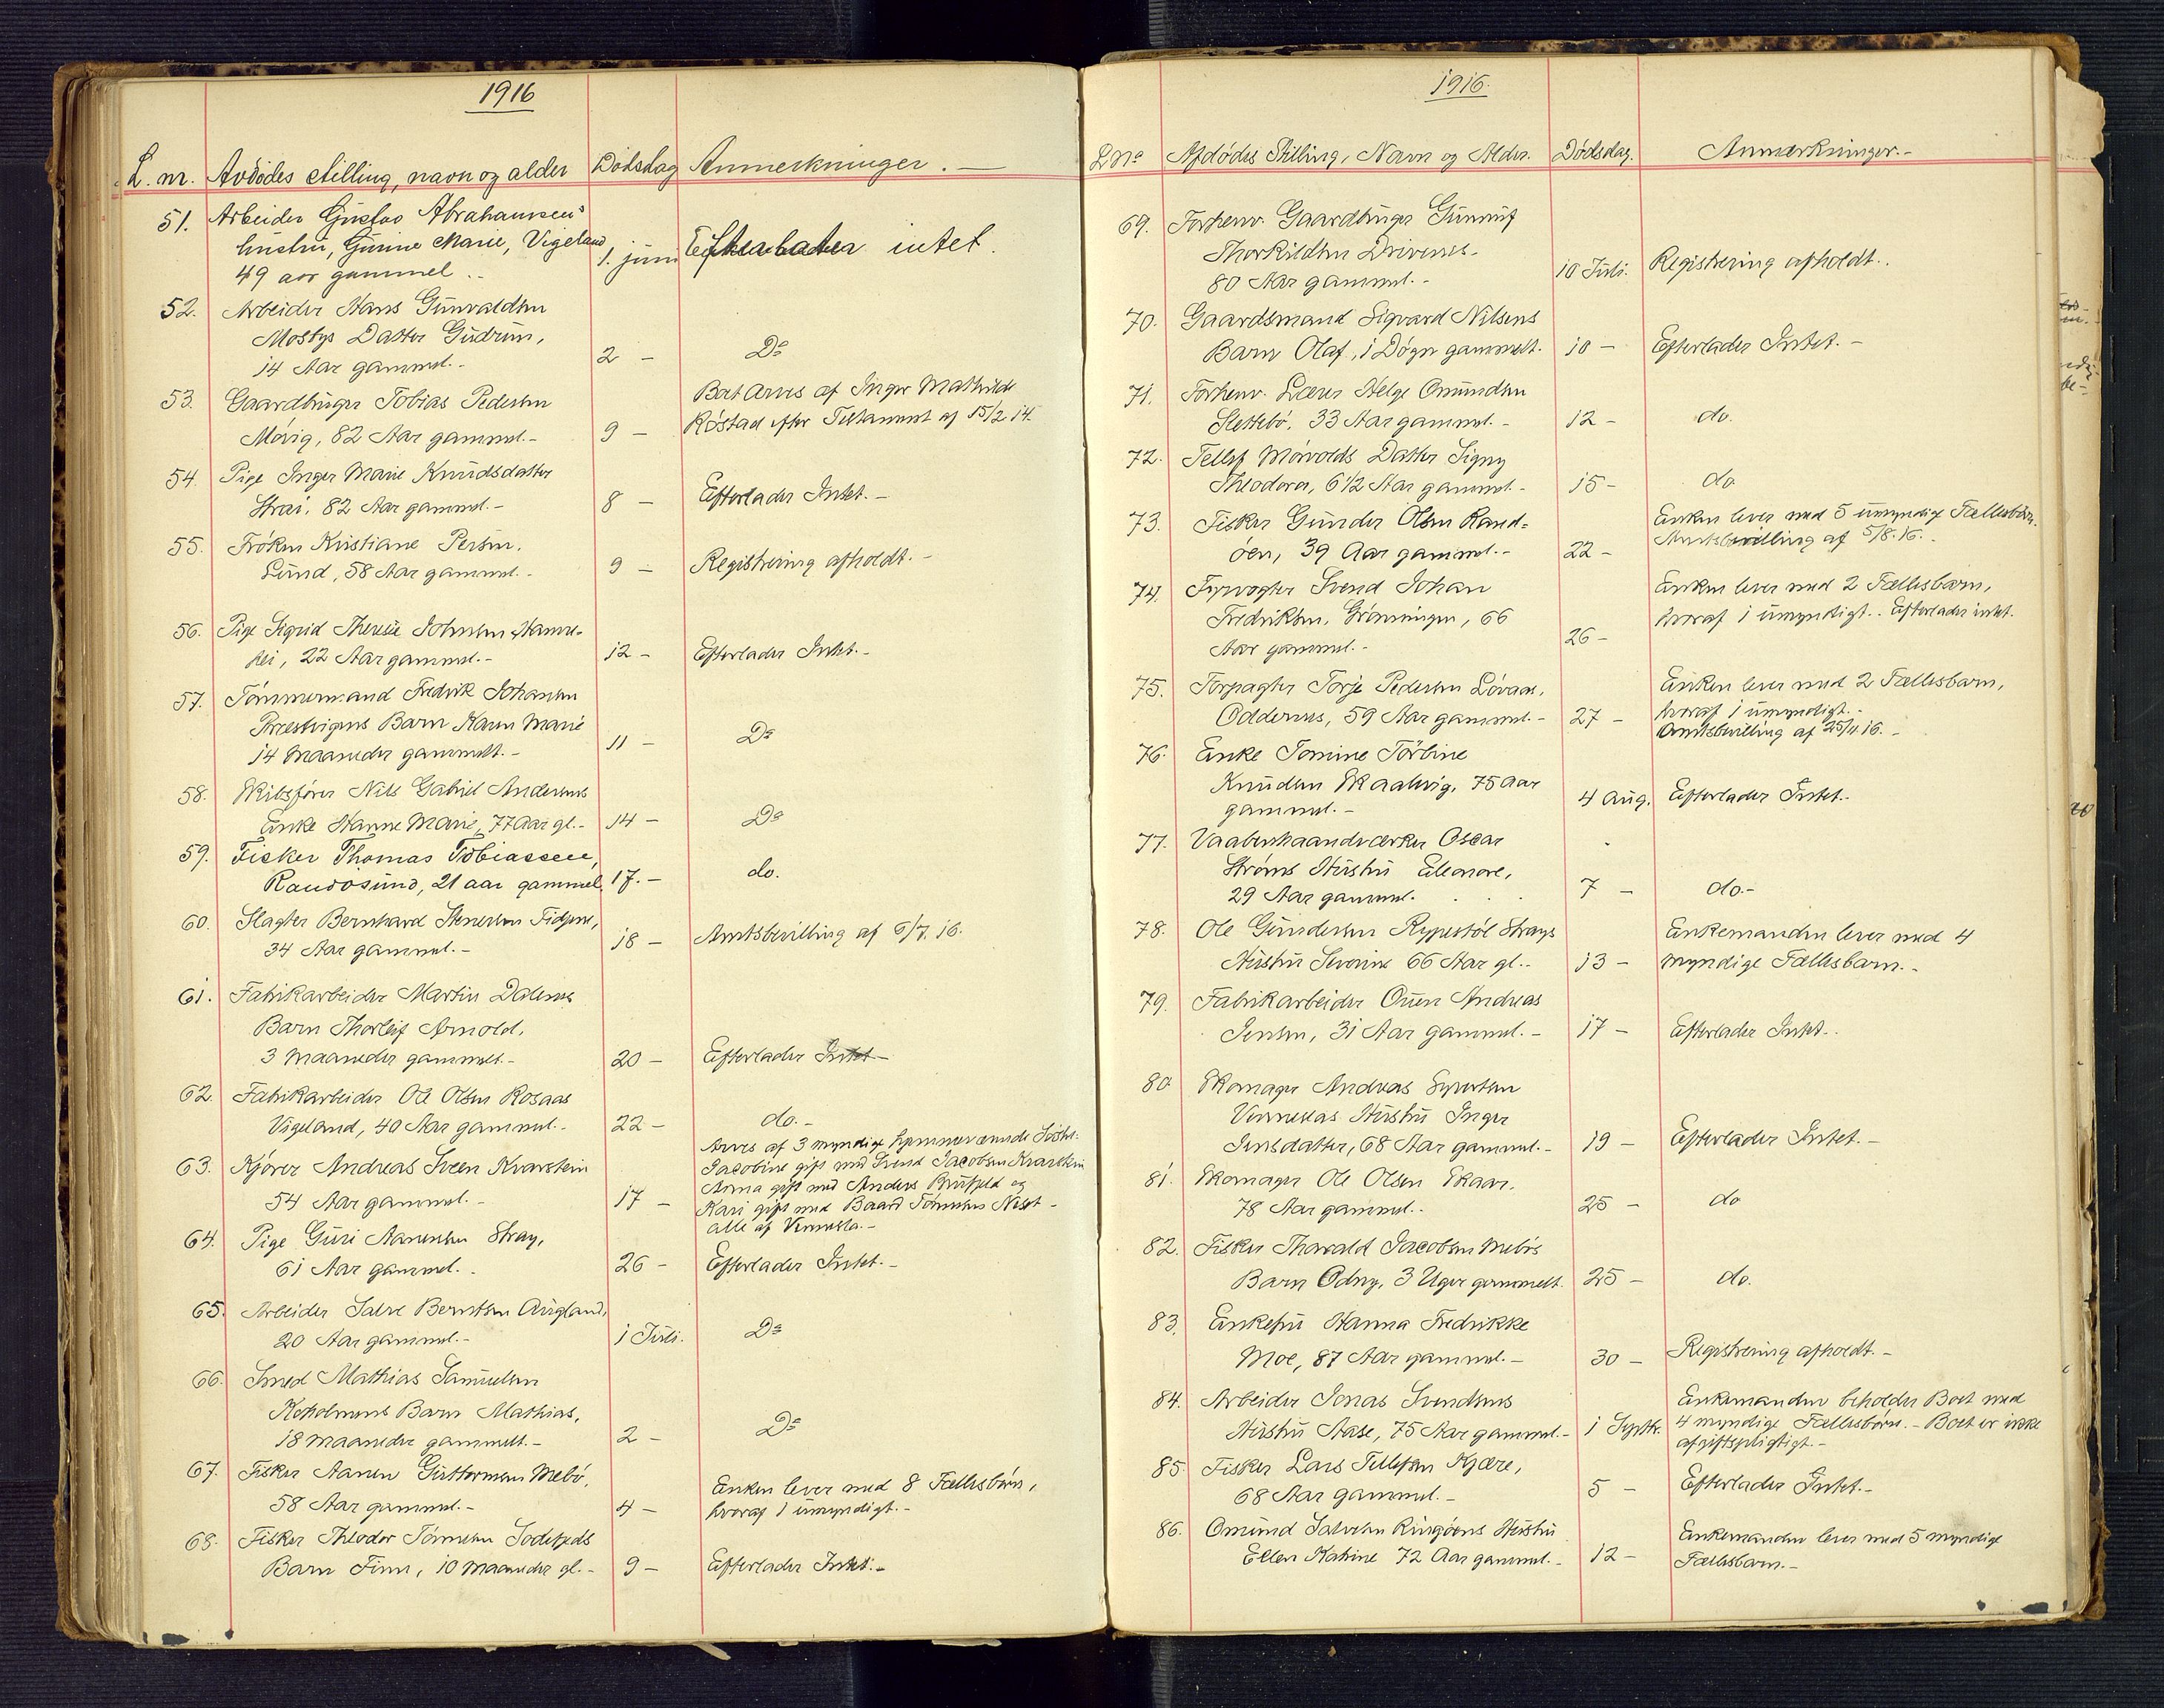 1916
L. nr. Avdødes stilling, navn og alder Dødsdag Anmerkninger. —
51. Arbeider Gustav Abrahamsens
hustru, Gurine Marie, Vigeland
49 aar gammel.. 1. juni Efterlater intet.
52. Arbeider Hans Gunvaldsen
Mosbys Datter Gudrun,
14 Aar gammel.- 2 - Do
53. Gaardbruger Tobias Pedersen Boet arves af Inger Mathilde
Møvig, 82 Aar gammel.- 9 - Røstad efter Testament af 15/2 14.
54. Pige Inger Marie Knudsdatter
Strai, 82 Aar gammel.- 8 - Efterlader Intet.-
55. Frøken Kristiane Persen,
Lund, 58 Aar gammel.- 9 - Registrering afholdt.-
56. Pige Sigrid Therese Johnsen Hamre-
hei, 22 Aar gammel.- 12 - Efterlader Intet.-
57. Tømmermand Fredrik Johansen
Præstvigens Barn Karen Marie
14 Maaneder gammelt.- 11 - Do
58. Skibsfører Nils Gabriel Andersens
Enke Hanne Marie, 77 Aar gl.- 14 - Do
59. Fisker Thomas Tobiassen,
Randøsund, 21 aar gammel. 17.- do.
60. Slagter Bernhard Stenersen Fidjene,
34 Aar gammel.- 18 - Amtsbevilling af 6/7. 16.
61. Fabrikarbeider Martin Dalenes
Barn Thorleif Arnold,
3 Maaneder gammelt.- 20 - Efterlader Intet-
62. Fabrikarbeider Ole Olsen Rosaas
Vigeland, 40 Aar gammel.- 22 - do.-
Arves af 3 myndige hjemmeværende Søstre:
63. Kjører Andreas Sveen Kvarstein Jacobine gift med Svend Jacobsen Kvarstein
54 Aar gammel.- 17 - Anna gift med Anders Brufjeld og
Kari gift med Baard Tønnesen -
alle af Vennesla.-
64. Pige Guri Aanensen Stray,
61 Aar gammel.- 26 - Efterlader Intet.-
65. Arbeider Salve Berntsen Augland,
20 Aar gammel.- 1 Juli. Do
66. Smed Mathias Samuelsen
Kjeholmens Barn Mathias,
18 Maaneder gammelt.- 2 - Do
67. Fisker Aanen Guttormsen Mebø, Enken lever med 8 Fællesbørn,
58 Aar gammel.- 4 - hvoraf 1 umyndigt.-
68. Fisker Theodor Tønnesen Sodefjeds
Barn Finn, 10 Maaneder gl.- 9 - Efterlader Intet.-
1916.
L No Afdødes Stilling, Navn og Alder. Dødsdag. Anmærkninger.-
69. Forhenv. Gaardbruger Gunnuf
Thorkildsen Drivenes.
80 Aar gammel.- 10 Juli. Registrering afholdt..
70. Gaardsmand Sigvard Nilsens
Barn Olaf, 1 Døgn gammelt. 10 - Efterlader Intet.-
71. Forhenv. Lærer Helge Omundsen
Slettebø, 33 Aar gammel.- 12 - do.
72. Tellef Mørvolds Datter Signy
Theodora, 6 1/2 Aar gammel.- 15 - do
73. Fisker Gunder Olsen Rand= Enken lever med 5 umyndige Fællesbørn.
øen, 39 Aar gammel.- 22 - Amtsbevilling af 5/8. 16.-
74. Fyrvogter Svend Johan Enken lever med 2 Fællesbarn,
Fredriksen, Grønningen, 66 hvoraf 1 umyndigt.. Efterlader intet.
Aar gammel.- 26 -
75. Forpagter Torje Pedersen Løvaas, Enken lever med 2 Fællesbarn,
Oddernes, 59 Aar gammel.- 27 - hvoraf 1 umyndigt.-
Amtsbevilling af 25/11 16.-
76. Enke Tomine Torbine
Knudsen Skaalevig, 75 Aar
gammel.- 4 Aug. Efterlader Intet.-
77. Vaabenhaandværker Oscar
Strøms Hustru Eleonore,
29 Aar gammel. 7 - do.-
78. Ole Gundersen Rypestøl Strays Enkemanden lever med 4
Hustru Severine 66 Aar gl.. 13 - myndige Fællesbarn.-
79. Fabrikarbeider Ouen Andreas
Jensen, 31 Aar gammel.- 17 - Efterlader Intet..
80. Skomager Andreas Syvertsen
Venneslas Hustru Inger
Jensdatter, 68 Aar gammel.- 19 - Efterlader Intet.-
81. Skomager Ole Olsen Skaar,
78 Aar gammel.- 25 - do
82. Fisker Thorvald Jacobsen Mebøs
Barn Odny, 3 Uger gammelt. 25 - do.
83. Enkefru Hanna Fredrikke
Moe, 87 Aar gammel.- 30 - Registrering afholdt.-
84. Arbeider Jonas Svendsens Enkemanden beholder Boet med
Hustru Aase, 75 Aar gammel.- 1 Septbr. 4 myndige Fællesbørn.- Boet er ikke
afgiftspligtigt.-
85. Fisker Lars Tellefsen Kjære,
68 Aar gammel.- 5 - Efterlader Intet.-
86. Omund Salvesen Ringøens Hustru Enkemanden lever med 5 myndige
Ellen Katrine 72 Aar gammel.- 12 - Fællesbarn.-